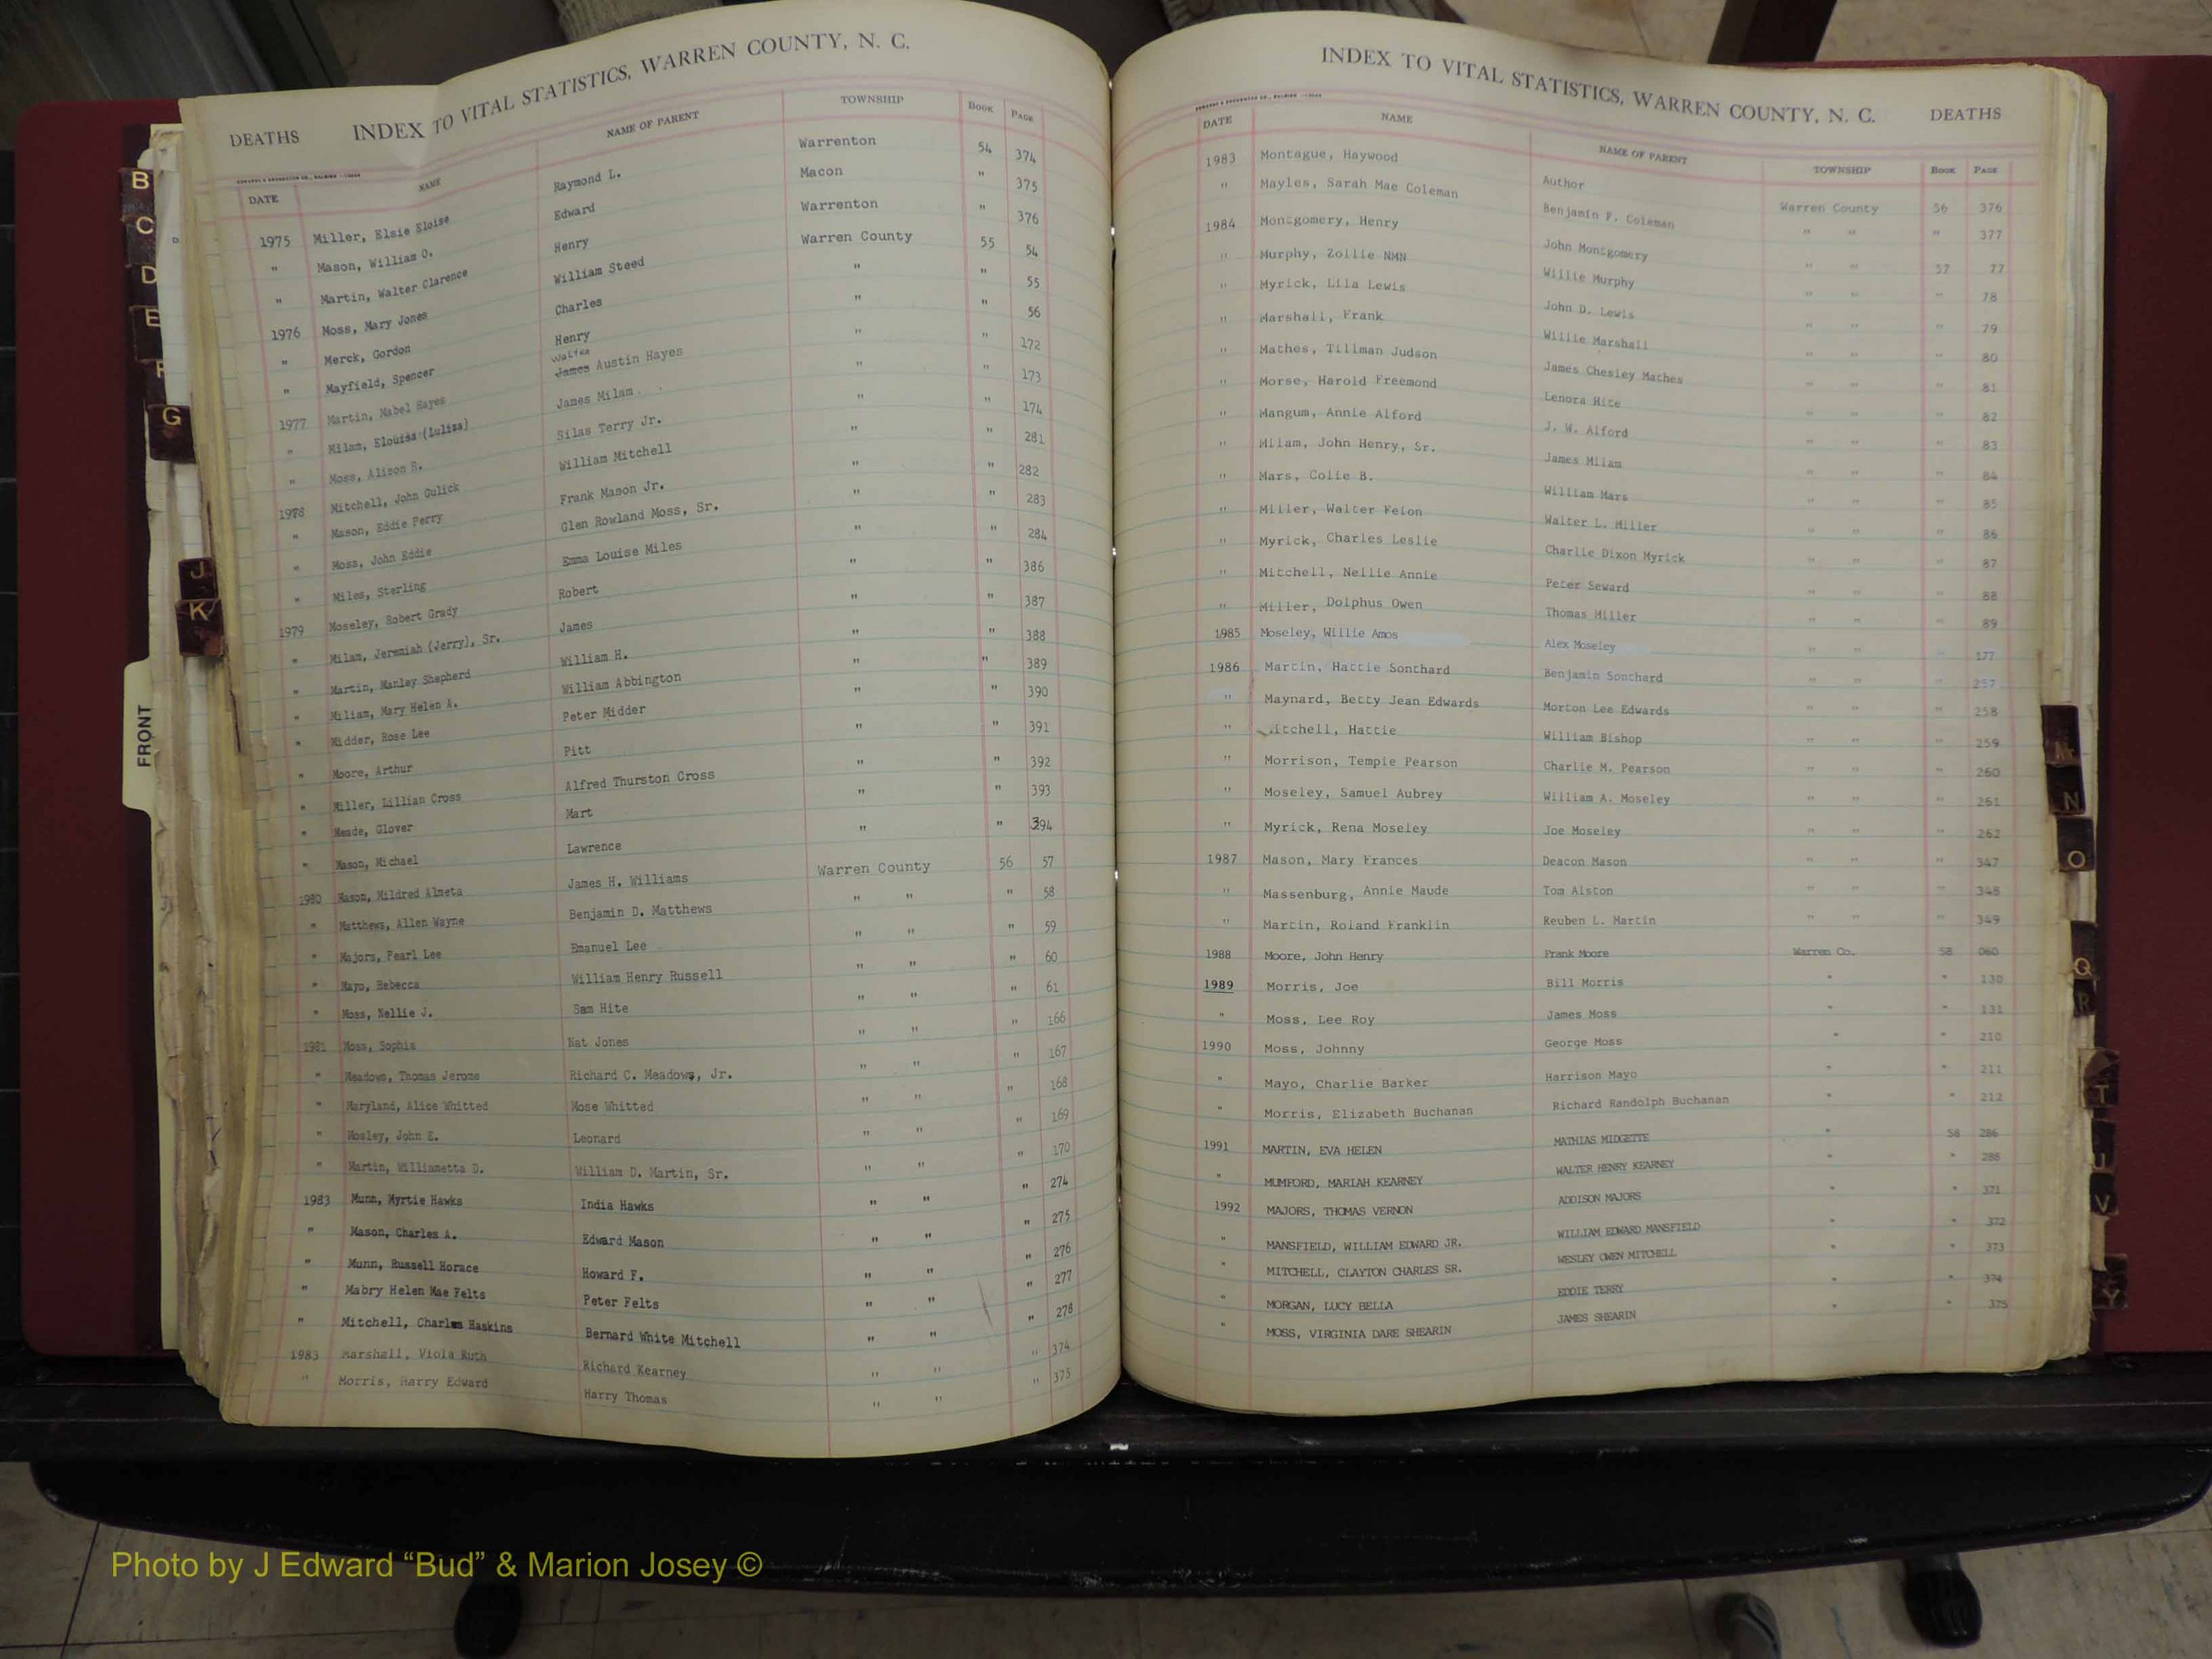 INDEX TO VITAL STATISTICS, WARREN COUNTY, N. C.
DEATHS
DATE NAME NAME OF PARENT TOWNSHIP BOOK PAGE
1975 Miller, Elsie Eloise Raymond L. Warrenton 54 374
" Mason, William O. Edward Macon " 375
" Martin, Walter Clarence Henry Warrenton " 376
1976 Moss, Mary Jones William Steed Warren County 55 54
" Merck, Gordon Charles " " 55
" Mayfield, Spencer Henry " " 56
1977 Martin, Mabel Hayes Walter James Austin Hayes " " 172
" Milam, Elouisa (Luliza) James Milam " " 173
" Moss, Alison R. Silas Terry Jr. " " 174
1978 Mitchell, John Gulick William Mitchell " " 281
" Mason, Eddie Perry Frank Mason Jr. " " 282
" Moss, John Eddie Glen Rowland Moss, Sr. " " 283
" Miles, Sterling Emma Louise Miles " " 284
1979 Moseley, Robert Grady Robert " " 386
" Milam, Jeremiah (Jerry), Sr. James " " 387
" Martin, Manley Shepherd William H. " " 388
" Miliam, Mary Helen A. William Abbington " " 389
" Midder, Rose Lee Peter Midder " " 390
" Moore, Arthur Pitt " " 391
" Miller, Lillian Cross Alfred Thurston Cross " " 392
" Meade, Glover Mart " " 393
" Mason, Michael Lawrence " " 394
1980 Mason, Mildred Almeta James H. Williams Warren County 56 57
" Matthews, Allen Wayne Benjamin D. Matthews " " " 58
" Majors, Pearl Lee Emanuel Lee " " " 59
" Mayo, Rebecca William Henry Russell " " " 60
" Moss, Nellie J. Sam Hite " " " 61
1981 Moss, Sophia Nat Jones " " " 166
" Meadows, Thomas Jerome Richard C. Meadows, Jr. " " " 167
" Maryland, Alice Whitted Mose Whitted " " " 168
" Mosley, John E. Leonard " " " 169
" Martin, Williametta D. William D. Martin, Sr. " " " 170
1983 Munn, Myrtie Hawks India Hawks " " " 274
" Mason, Charles A. Edward Mason " " " 275
" Munn, Russell Horace Howard F. " " " 276
" Mabry Helen Mae Felts Peter Felts " " " 277
" Mitchell, Charles Haskins Bernard White Mitchell " " " 278
1983 Marshall, Viola Ruth Richard Kearney " " " 374
" Morris, Harry Edward Harry Thomas " " " 375
INDEX TO VITAL STATISTICS, WARREN COUNTY, N. C.
DEATHS
DATE NAME NAME OF PARENT TOWNSHIP BOOK PAGE
1983 Montague, Haywood Author Warren County 56 376
" Mayles, Sarah Mae Coleman Benjamin F. Coleman " " " 377
1984 Montgomery, Henry John Montgomery " " 57 77
" Murphy, Zollie NMN Willie Murphy " " " 78
" Myrick, Lila Lewis John D. Lewis " " " 79
" Marshall, Frank Willie Marshall " " " 80
" Mathes, Tillman Judson James Chesley Mathes " " " 81
" Morse, Harold Freemond Lenora Hite " " " 82
" Mangum, Annie Alford J. W. Alford " " " 83
" Milam, John Henry, Sr. James Milam " " " 84
" Mars, Colie B. William Mars " " " 85
" Miller, Walter Felon Walter L. Miller " " " 86
" Myrick, Charles Leslie Charlie Dixon Myrick " " " 87
" Mitchell, Nellie Annie Peter Seward " " " 88
" Miller, Dolphus Owen Thomas Miller " " " 89
1985 Moseley, Willie Amos Alex Moseley " " " 177
1986 Martin, Hattie Sonthard Benjamin Sonthard " " " 257
" Maynard, Betty Jean Edwards Morton Lee Edwards " " " 258
" Mitchell, Hattie William Bishop " " " 259
" Morrison, Temple Pearson Charlie M. Pearson " " " 260
" Moseley, Samuel Aubrey William A. Moseley " " " 261
" Myrick, Rena Moseley Joe Moseley " " " 262
1987 Mason, Mary Frances Deacon Mason " " " 347
" Massenburg, Annie Maude Tom Alston " " " 348
" Martin, Roland Franklin Reuben L. Martin " " " 349
1988 Moore, John Henry Frank Moore Warren Co. 58 060
1989 Morris, Joe Bill Morris " " 130
" Moss, Lee Roy James Moss " " 131
1990 Moss, Johnny George Moss " " 210
" Mayo, Charlie Barker Harrison Mayo " " 211
" Morris, Elizabeth Buchanan Richard Randolph Buchanan " " 212
1991 MARTIN, EVA HELEN MATHIAS MIDGETTE " 58 286
" MUMFORD, MARIAH KEARNEY WALTER HENRY KEARNEY " " 288
1992 MAJORS, THOMAS VERNON ADDISON MAJORS " " 371
" MANSFIELD, WILLIAM EDWARD JR. WILLIAM EDWARD MANSFIELD " " 372
" MITCHELL, CLAYTON CHARLES SR. WESLEY OWEN MITCHELL " " 373
" MORGAN, LUCY BELLA EDDIE TERRY " " 374
" MOSS, VIRGINIA DARE SHEARIN JAMES SHEARIN " " 375
B
C
D
E
F
G
J
K
FRONT
M
N
O
Q
R
T
U
V
Y
Photo by J Edward “Bud” & Marion Josey ©